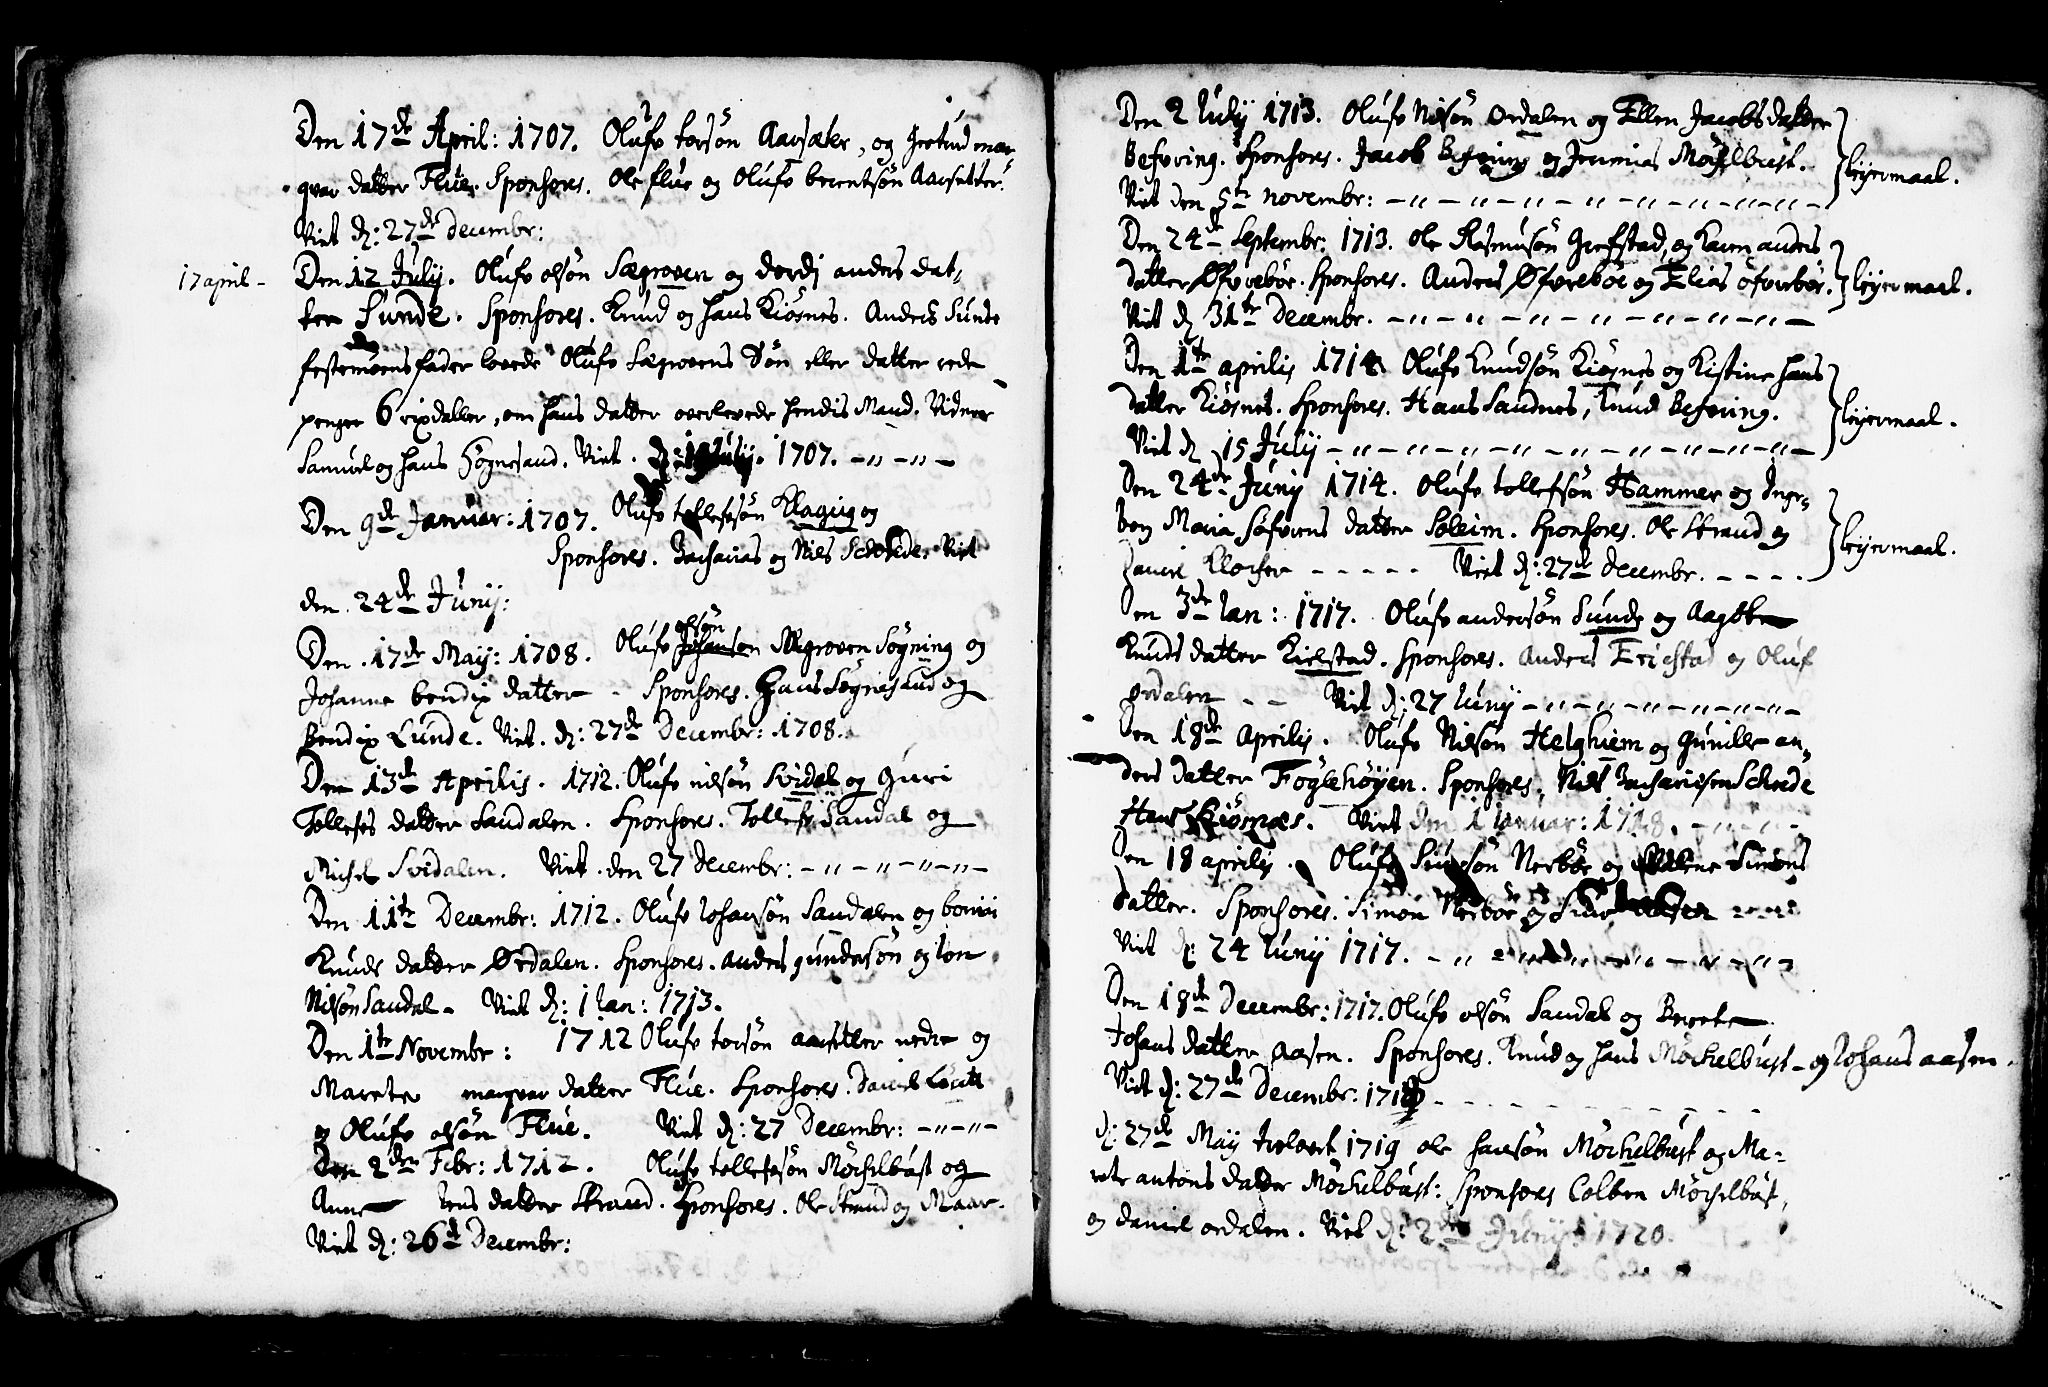 Den 17de April: 1707. Olufv torsön Aarsæter, og Gertrud mar
qvar datter Flue. Sponsores. Ole flue og Olufv berentsön Aarsetter.
Viet d: 27de Decembr:
17 april -
Den 12 July. Olufv olsön Sægroven og dordj anders dat,
ter Sunde. Sponsores. Knud og hans Kiösnes. Anders Sunde
festemöens fader lovede Olufv Sægrovens Sön eller datter rede
penger 6 rixdaller, om hans datter overlevede hendis Mand. Vidner
Samuel og hans Sögnesand. Viet. July. 1707. -„-„-
Den 9de Januar: 1707. Olufv tollefsön Klagug og
Sponsores. Zacharias og Niels Schrede. Viet
den. 24de Junij:
olsön
Den. 17de Maij: 1708. Olufv Johansen Sægroven Sögning og
Johanne bendix datter - Sponsores. Hans Sögnesand og
Bendix Lunde. Viet. d: 27de Decembr: 1708.
Den 13de Aprilis. 1712. Olufv nilsön Svidal og Guri
Tollefs datter Sandalen. Sponsores. Tollef Sandal og
Michel Svidalen. Viet. den 27 Decembr: -„-„-„-„-
Den 11te Decembr: 1712. Olufv Johansön Sandalen og
Knuds datter Ordalen. Sponsores. anders gundersön og Jon
Nilsön Sandal - Viet d: 1 Jan: 1713.
Den 1te Novembr: 1712 Olufv torsön aarsetter nedre og
Marete marqvar datter Flue. Sponsores. Daniel
og Olufv olsön Flue. Viet d: 27 Decembr: -„-„-
Den 2den Febr: 1712. Olufv tollefsön Möchelbust og
Anne Jens datter Strand. Sponsores. Ole Strand og
Viet d: 26de Decembr:
Den 2 July 1713. Olufv Nilsön Ordalen og Ellen Jacobs datter
Befring. Sponsores. Jacob Befring og Jeremias Möchelbust. leyermaal.
Viet den 5te novembr: -„-„-„-„-„-„-„-
Den 24de Septembr: 1713. Ole Rasmusön Grefstad, og Karen anders
datter Øfrebøe. Sponsores. Anders Øfrebøe og Elias öfrebör. leyermaal.
Viet d 31te Decembr. -„-„-„-„-„-„-
Den 1te aprilis 1714. Olufv Knudsön Kiösnes og Kistine hans
datter Kiösnes. Sponsores. Hans Sandnes, Knud Befring. leyermaal.
Viet d 15 July -„-„-„-„-„-„-„-
Den 24de Junij 1714. Olufv tollefsön Hammer og Inge-
bor Maria Söfrens datter Soleim. Sponsores. Ole Strand og leyermaal.
Daniel Klocker - - - - - Viet d: 27de Decembr. - - - -
Den 3de Jan: 1717. Olufv andersön Sunde og Aagöte
Knuds datter Kielstad. Sponsores. Anders Ericstad og Oluf
Ordalen - - Viet d: 27 Junij -„-„-„-„-„-
Den 18de Aprilis. Olufv Nilsön Helghiem og Gunille an,
ders datter Föglehöyen. Sponsores. Niels Zachariesen Schrede
Hans Kiösnæs. Viet den 1 Januar: 1718. -„-„-
Den 18 aprilis. Olufv Siursön Nerbör og Simons
datter. Sponsores. Simon Nerbor og
Viet d: 24 Junij 1717.
Den 18de Decembr: 1717. Olufv olsön Sandal og Berete
Johans datter Aasen. Sponsores. Knud og hans Möchelbust - og Johans aasen.
Viet d: 27de Decembr:
d: 27de Maij 1719 ole hansön Möchelbust og Ma-
rete antons datter Möchelbust: Sponsores Colben Möchelbust,
og daniel ordalen. Viet d: 2den Junij 1720.